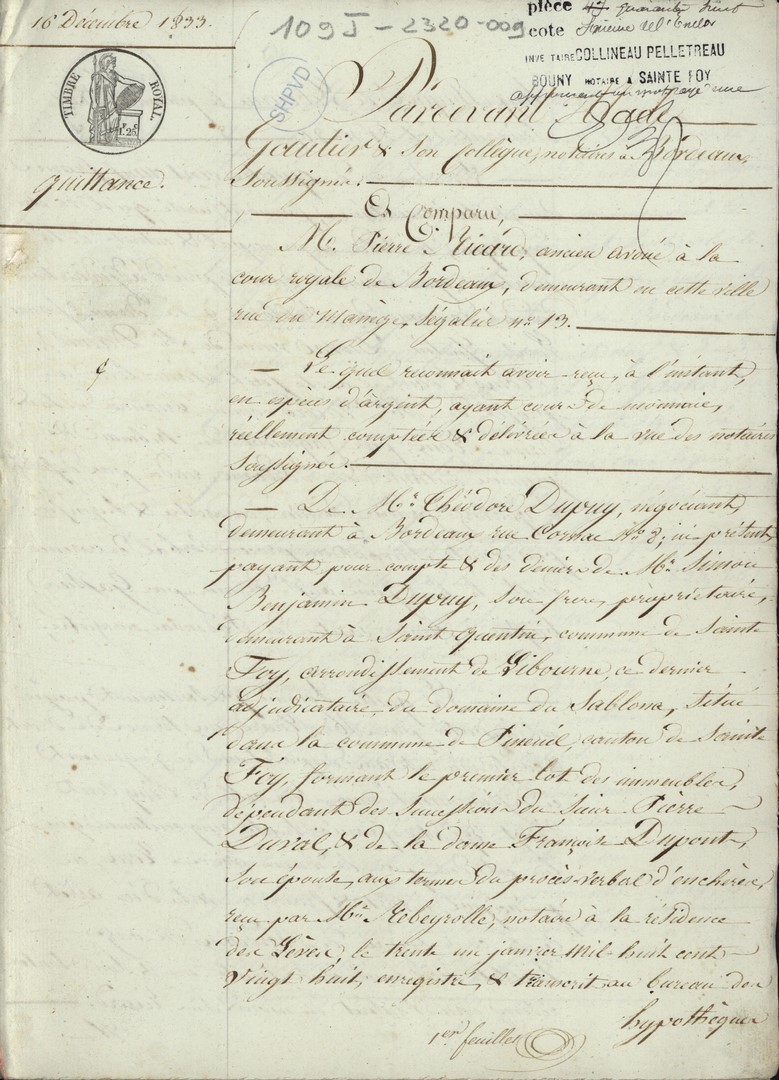 16 Décembre 1833.
109 J - 2320-009
pièce 47 quarante huit
cote
INVE TAIRE COLLINEAU PELLETREAU
BOUNY NOTAIRE A SAINTE FOY
SHPVD
TIMBRE ROYAL
1.25
quittance.
Pardevant Made
Gautier & Son Collègue, notaires à Bordeaux,
Soussignés.
Est Comparu,
M. Pierre Ricard, ancien avoué à la
cour royale de Bordeaux, demeurant en cette ville
rue du Manège, Ségalié n° 13.
— Le quel reconnait avoir reçu, à l'instant,
en espèces d'argent, ayant cours de monnaie,
réellement comptées & délivrées à la vue des notaires
Soussignés.
— De Mr. Théodore Dupuy, négociant,
demeurant à Bordeaux rue Cornac No 8; ici présent,
payant pour compte & des deniers de Mr. Simon
Benjamin Dupuy, Son frère, propriétaire,
demeurant à Saint Quentin, commune de Sainte
Foy, arrondissement de Libourne, ce dernier
adjudicataire du domaine du Sablona, situé
dans la commune de Pineuil, canton de Sainte
Foy, formant le premier lot des immeubles,
dépendant des Successions du Sieur Pierre
Duval, & de la dame Françoise Dupont,
Son épouse, aux termes du procès-verbal d'enchères,
reçu par Me Rebeyrolle, notaire à la résidence
des Lèves, le trente un janvier mil-huit cent-
vingt huit, enregistré, & transcrit au bureau des
hypothèques
1er feuilles